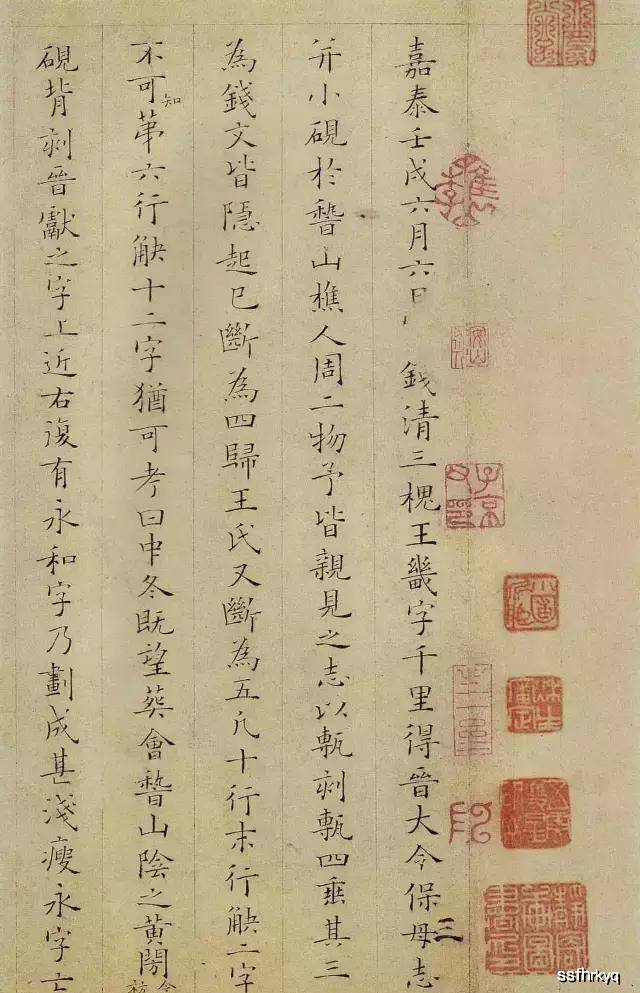 嘉泰壬戌六月六日 錢清三槐王畿字千里得晉大令保母志
并小硯於稽山樵人周二物予皆親見之志以甎刻甎四垂其三
為錢文皆隱起已斷為四歸王氏又斷為五凡十行末行缺二字
不可知第六行缺十二字猶可考曰中冬既望葬會稽山陰之黃閍
硯背刻晉獻之字上近右復有永和字乃劃成甚淺瘦永字亡
三
ssfhrkyq